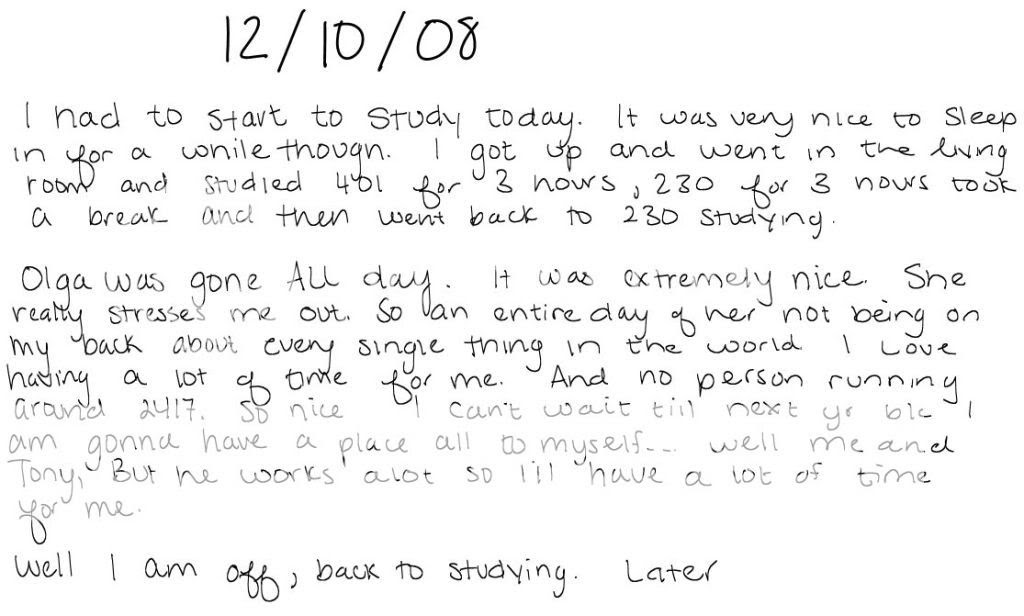 12/10/08
I had to start to study today. It was very nice to sleep
in for a while though. I got up and went in the living
room and studied 401 for 3 hours, 230 for 3 hours took
a break and then went back to 230 studying.
Olga was gone All day. It was extremely nice. She
really stresses me out. So an entire day of her not being on
my back about every single thing in the world I Love
having a lot of time for me. And no person running
around 24/7. So nice I can't wait till next yr b/c I
am gonna have a place all to myself... well me and
Tony, But he works alot so I'll have a lot of time
for me.
Well I am off, back to studying. Later